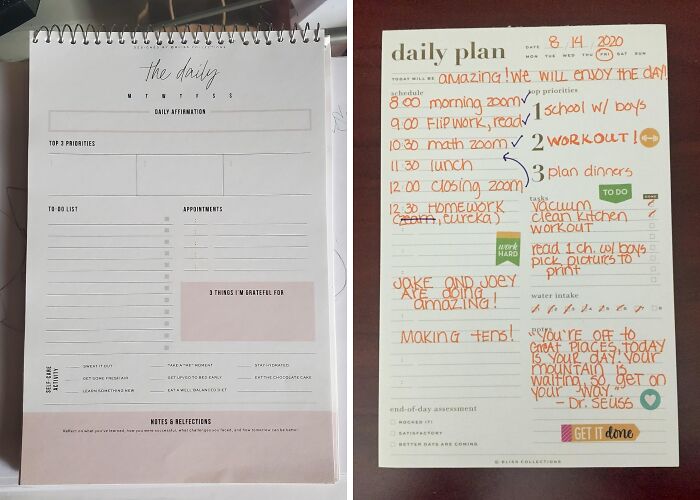 DESIGNED BY @BLISS.COLLECTIONS
the daily
M T W T F S S
DAILY AFFIRMATION
TOP 3 PRIORITIES
1 2 3
TO-DO LIST
APPOINTMENTS
3 THINGS I'M GRATEFUL FOR
SELF-CARE
ACTIVITY
SWEAT IT OUT
TAKE A "ME" MOMENT
STAY-HYDRATED
GET SOME FRESH AIR
GET UP/GO TO BED EARLY
EAT THE CHOCOLATE CAKE
LEARN SOMETHING NEW
EAT A WELL BALANCED DIET
NOTES & RELFECTIONS
Reflect on what you've learned, how you were successful, what challenges you faced, and how tomorrow can be better.
daily plan
DATE 8 / 14 / 2020
MON TUE WED THU FRI SAT SUN
TODAY WILL BE amazing! We will enjoy the day!
schedule
8:00 morning zoom
9:00 Flip work, read
10:30 math zoom
11:30 lunch
12:00 closing zoom
12:30 Homework
eureka)
work
HARD
JAKE AND JOEY
ARE doing
amazing!
Making tens!
end-of-day assessment
ROCKED IT!
SATISFACTORY
BETTER DAYS ARE COMING
top priorities
1 school w/ boys
2 WORKOUT!
3 plan dinners
TO DO
tasks
DONE
vacuum
clean kitchen
workout
read 1 ch. w/ boys
pick pictures to
print
water intake
1 2 3 4 5 6 7 8
notes
"You're off to
great places, today
is your day. Your
mountain is
waiting so get on
your way."
- Dr. Seuss
GET IT done
© BLISS COLLECTIONS